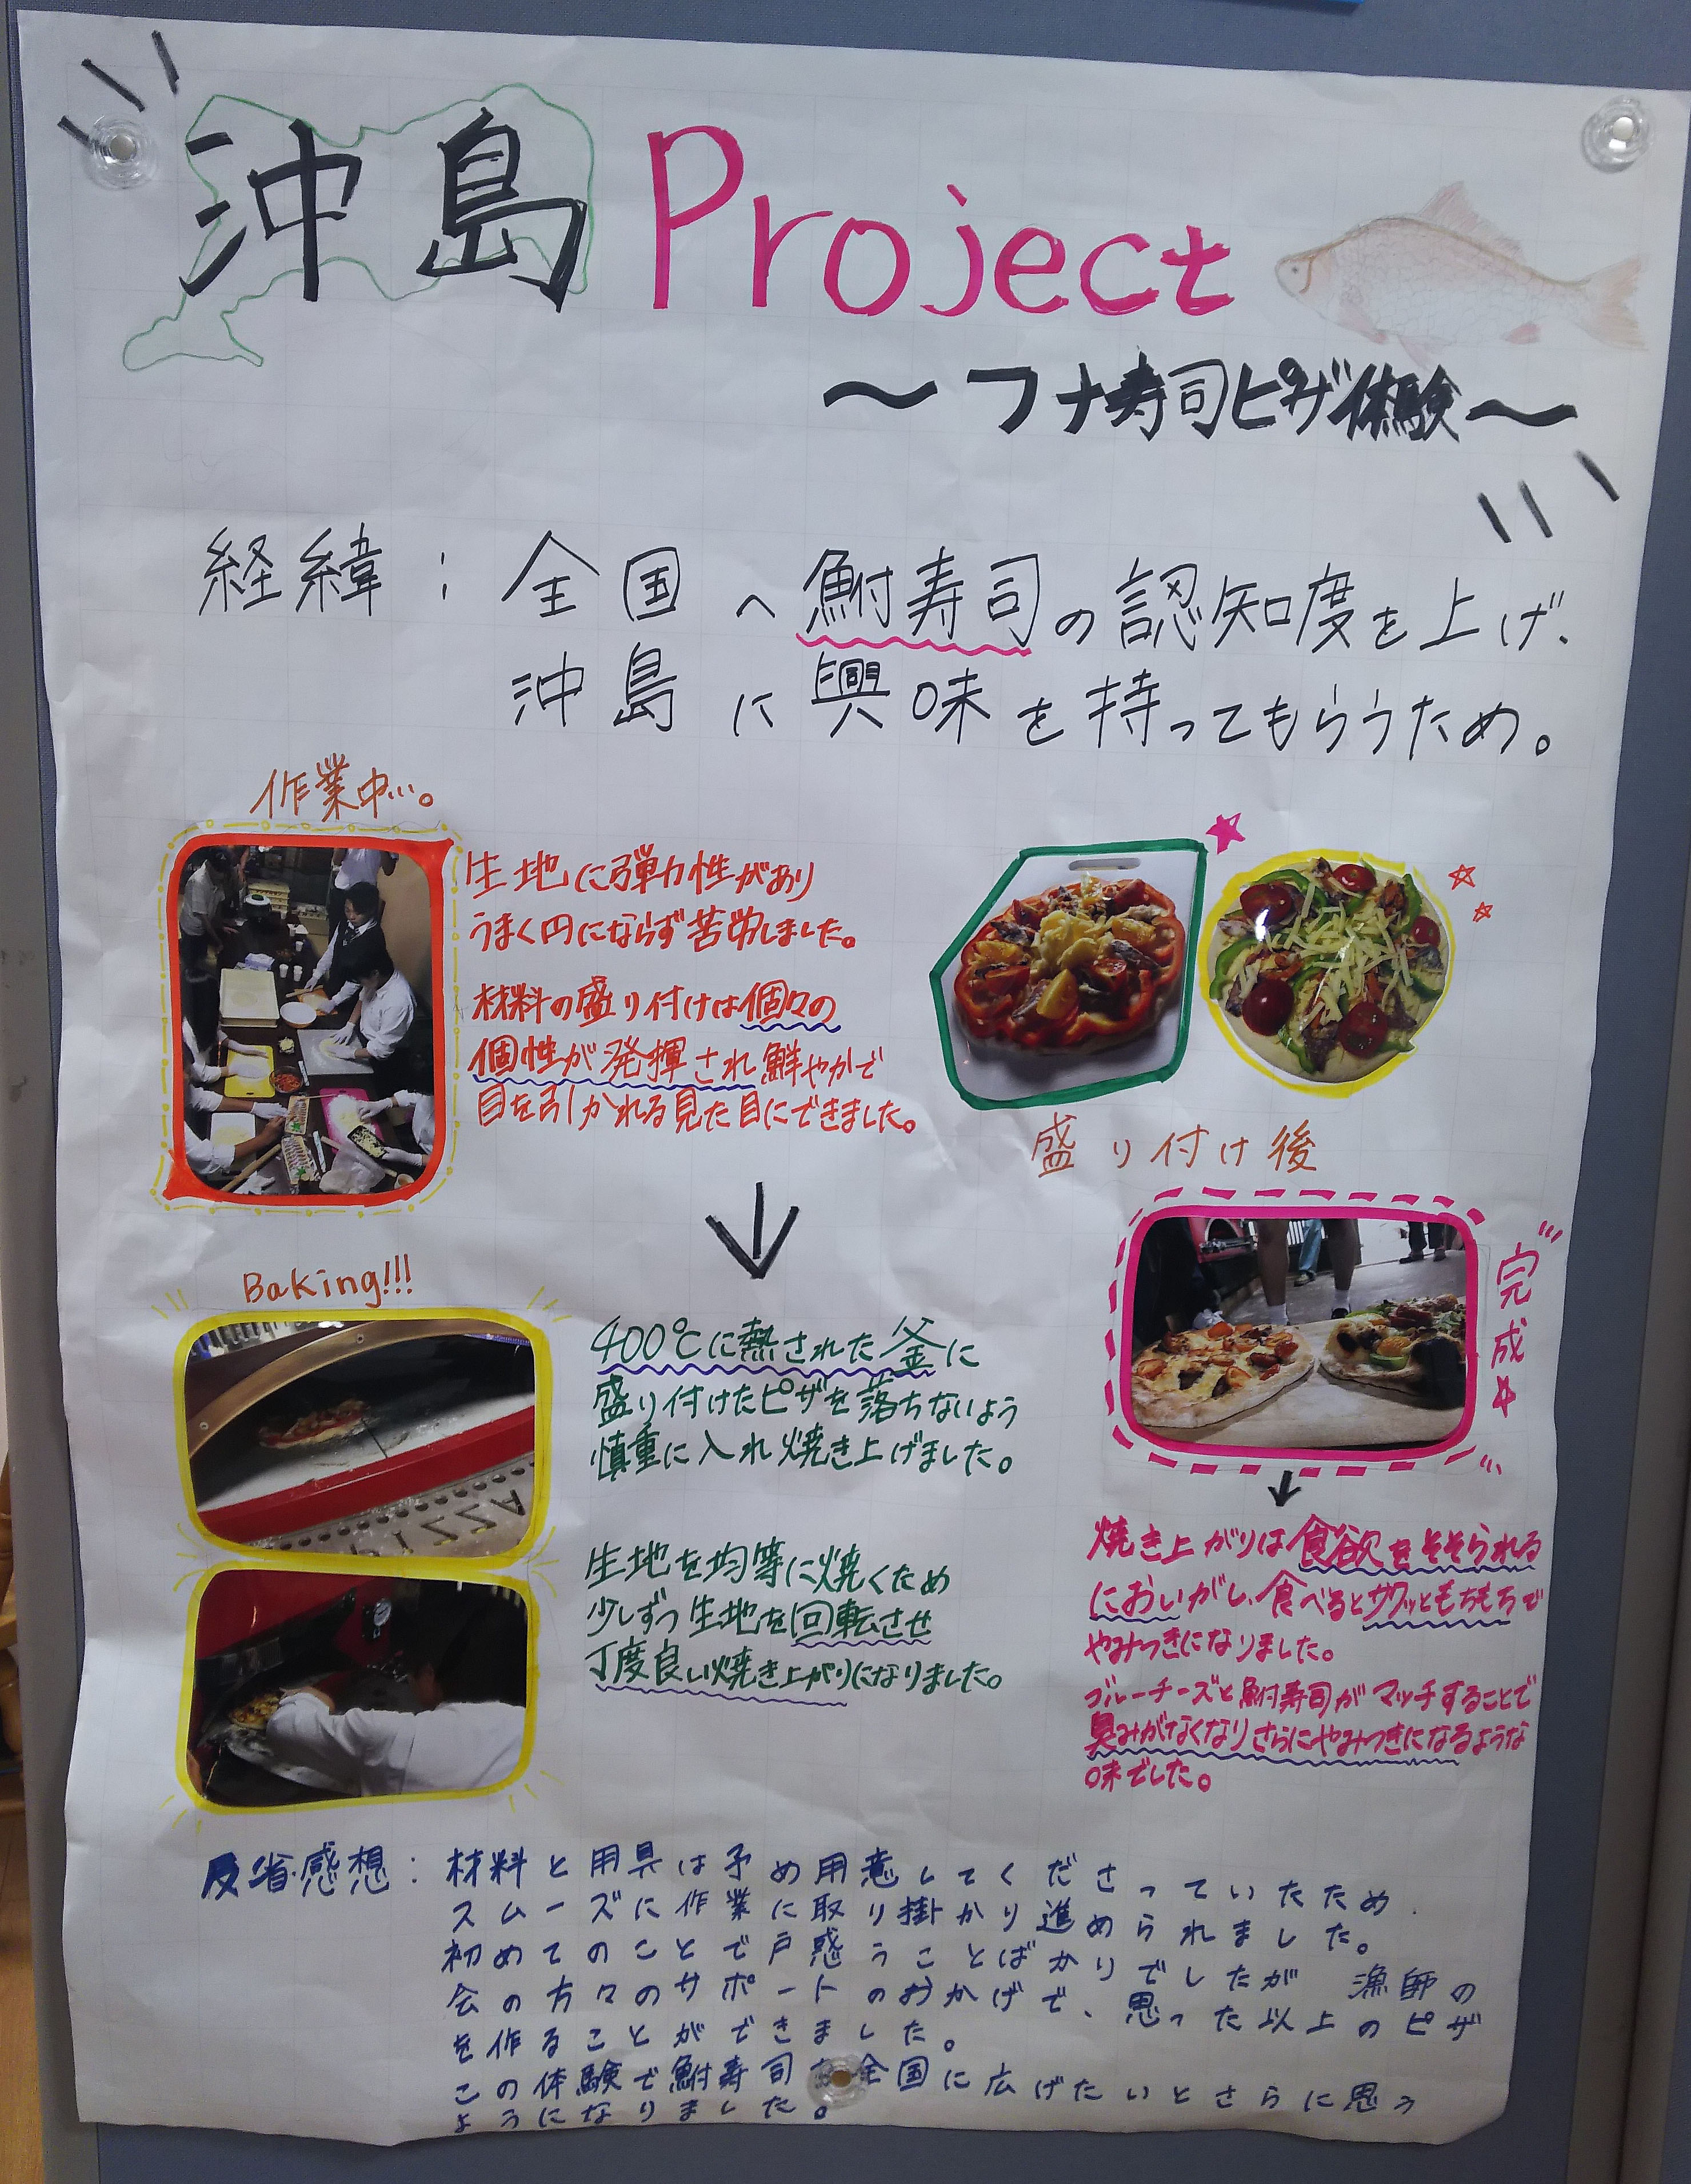 沖島 Project
～フナ寿司ピザ体験～
経緯：全国へ鮒寿司の認知度を上げ、
沖島に興味を持ってもらうため。
作業中…。
生地に弾力性があり
うまく円にならず苦労しました。
材料の盛り付けは個々の
個性が発揮され鮮やかで
目を引かれる見た目にできました。
盛り付け後
Baking!!!
400℃に熱された釜に
盛り付けたピザを落ちないよう
慎重に入れ焼き上げました。
生地を均等に焼くため
少しずつ生地を回転させ
丁度良い焼き上がりになりました。
完成
焼き上がりは食欲をそそられる
においがし、食べるとサクッともちもちで
やみつきになりました。
ブルーチーズと鮒寿司がマッチすることで
臭みがなくなりさらにやみつきになるような
味でした。
反省・感想：材料と用具は予め用意してくださっていたため
スムーズに作業に取り掛かり進められました。
初めてのことで戸惑うことばかりでしたが 漁師の
会の方々のサポートのおかげで、思った以上のピザ
を作ることができました。
この体験で鮒寿司を全国に広げたいとさらに思う
ようになりました。